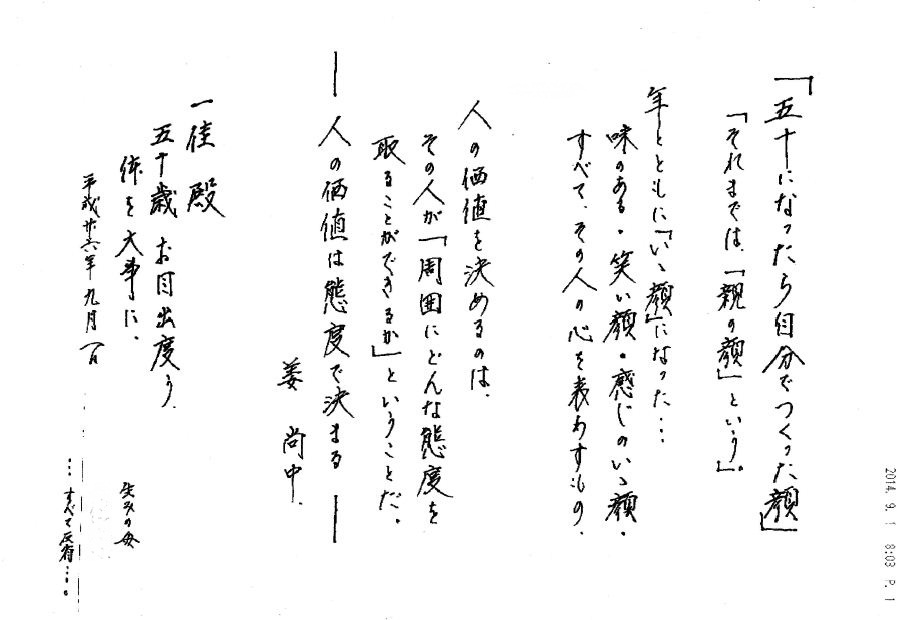 「五十になったら自分でつくった顔」
「それまでは、「親の顔」という」。
年とともに「いゝ顔」になった…
味のある・笑い顔・感じのいゝ顔・
すべて、その人の心を表わすもの、
人の価値を決めるのは、
その人が「周囲にどんな態度を
取ることができるか」ということだ。
― 人の価値は態度で決まる ―
姜 尚中、
一佳 殿
五十歳 お目出度う、
体を大事に、
平成廿六年九月一日
生みの母
…すべて反省…。
2014. 9. 1 8:03 P. 1